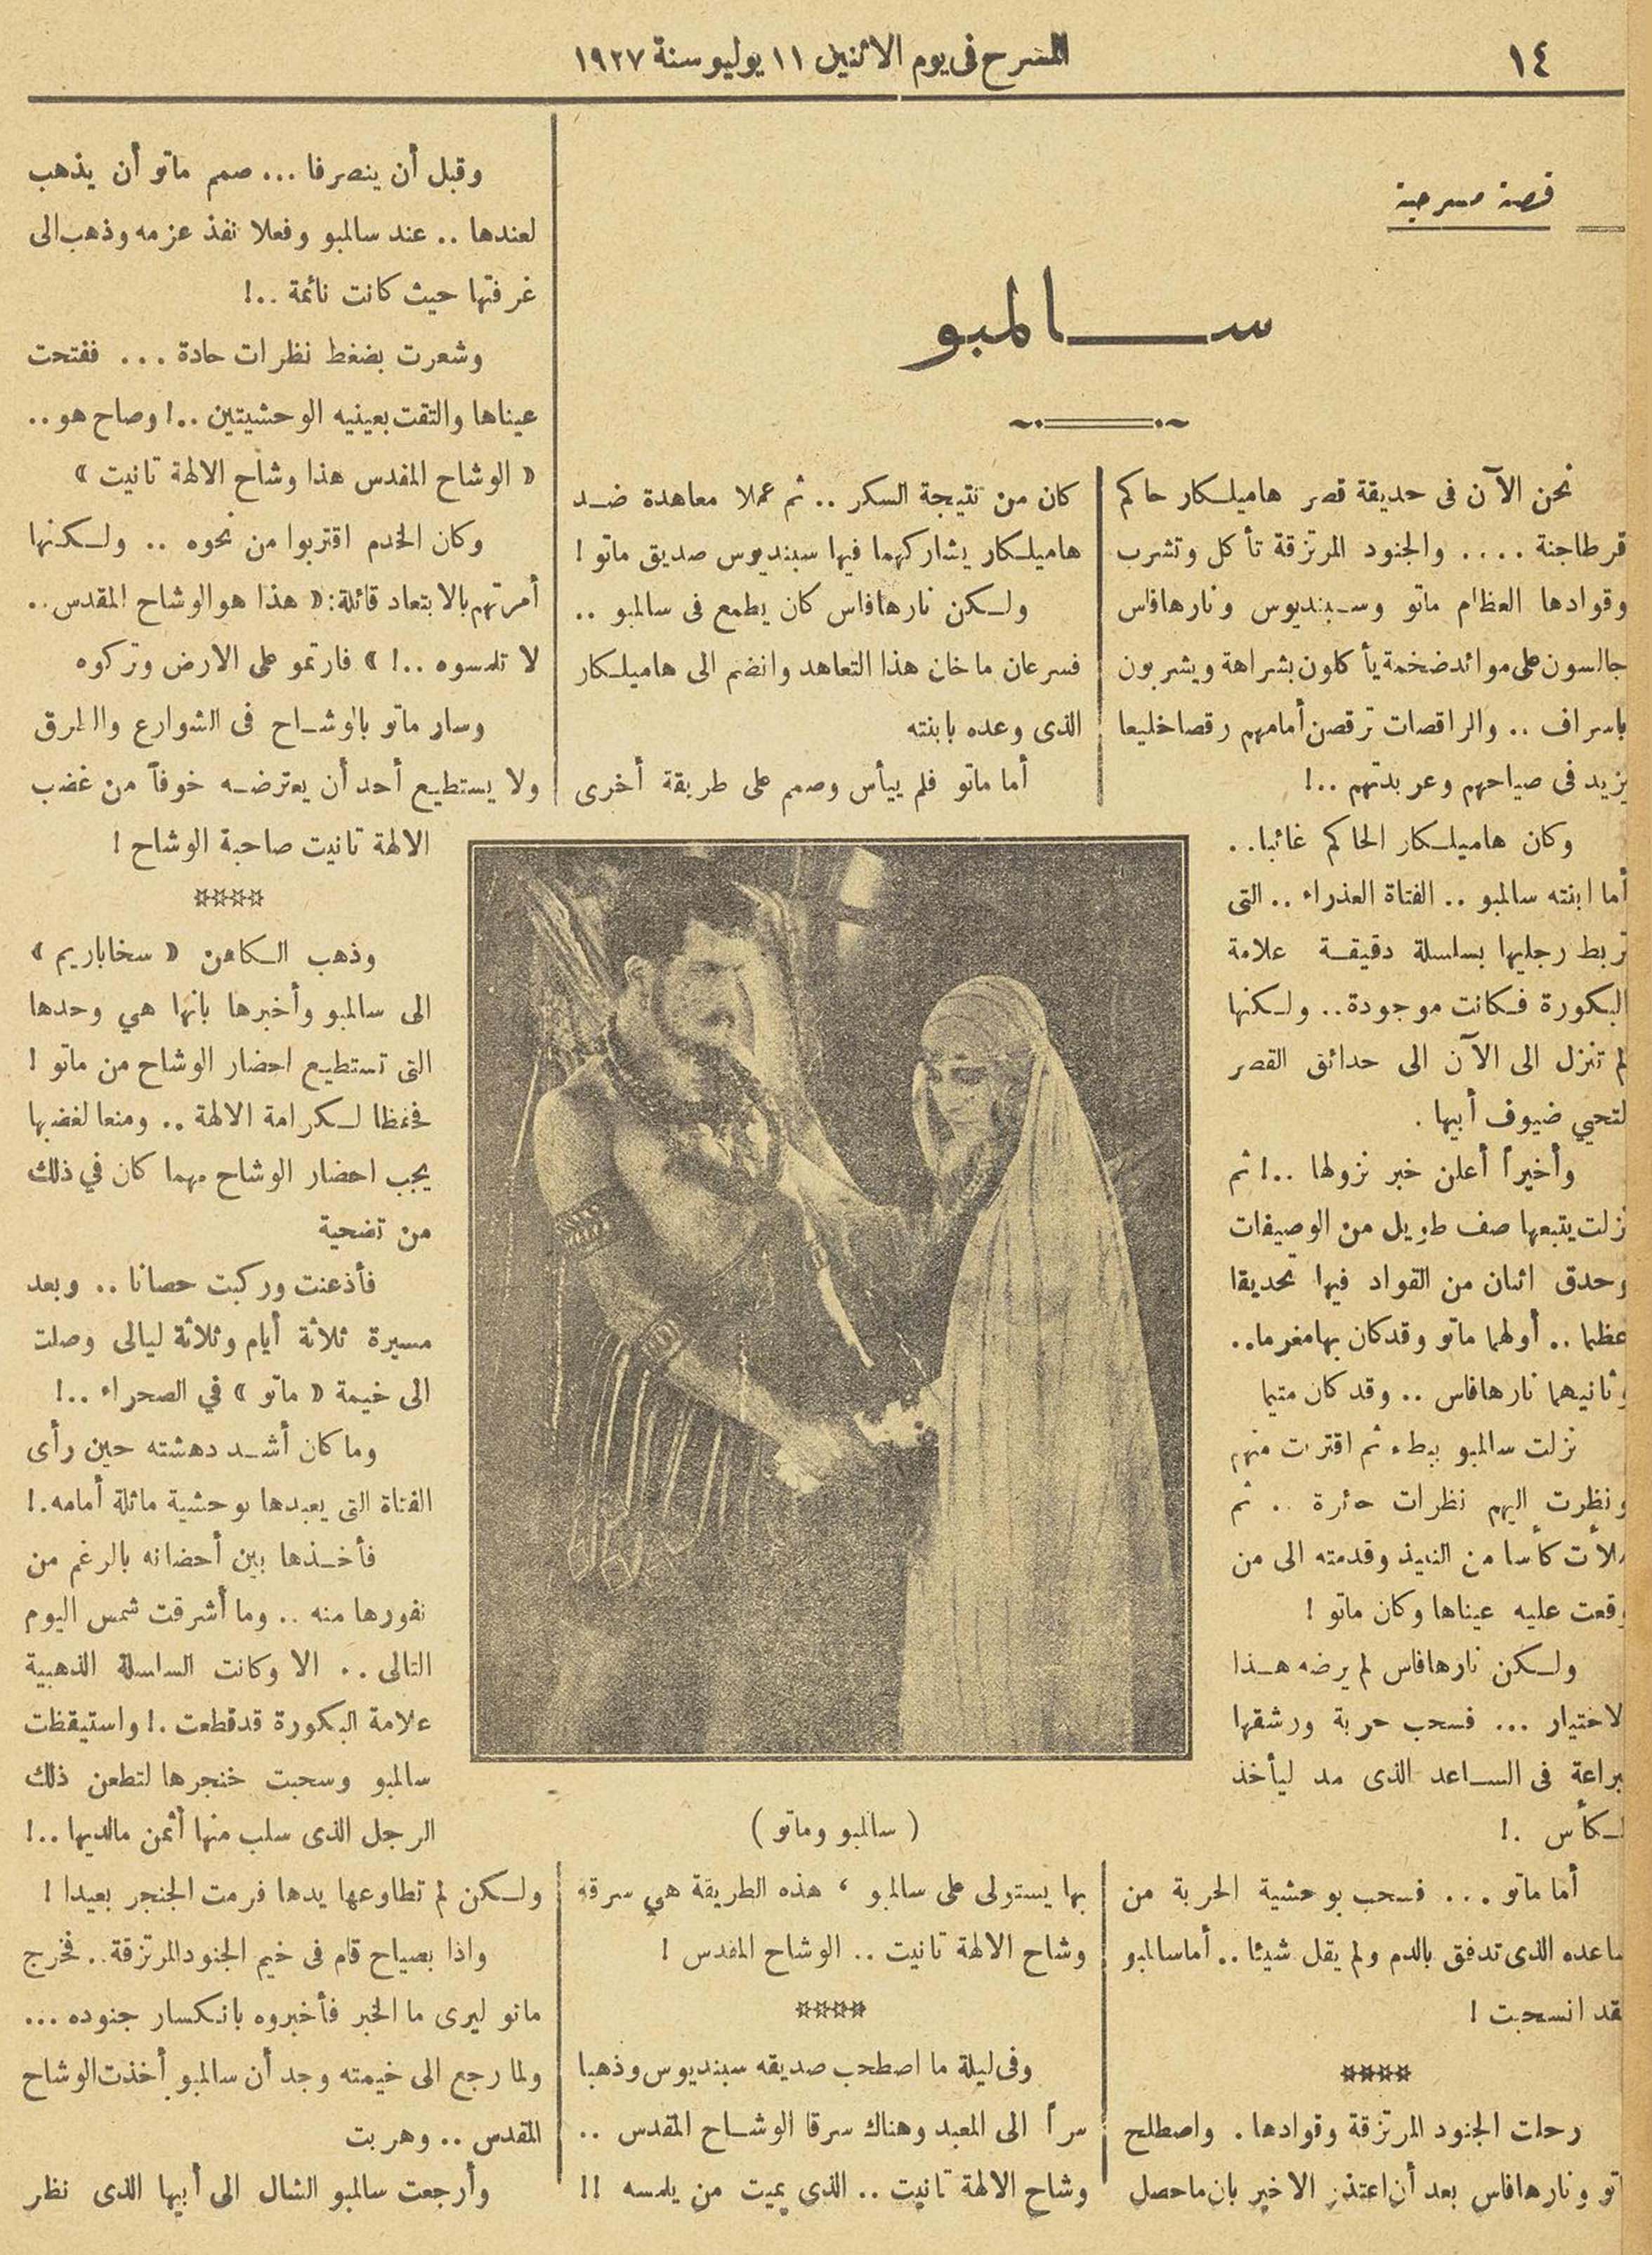 ١٤
المسرح فى يوم الاثنين ١١ يوليو سنة ١٩٢٧
قصة مسرحية
سالمبو
نحن الآن فى حديقة قصر هاميلكار حاكم
قرطاجنة .... والجنود المرتزقة تأكل وتشرب
وقوادها العظام ماتو وسبنديوس ونارهافاس
جالسون على موائد ضخمة يأكلون بشراهة ويشربون
باسراف .. والراقصات ترقصن أمامهم رقصا خليعا
يزيد فى صياحهم وعربدتهم ..!
وكان هاميلكار الحاكم غائبا..
أما ابنته سالمبو .. الفتاة العذراء .. التى
تربط رجليها بسلسلة دقيقة علامة
البكورة فكانت موجودة.. ولكنها
لم تنزل الى الآن الى حدائق القصر
لتحيي ضيوف أبيها .
وأخيراً أعلن خبر نزولها ..! ثم
نزلت يتبعها صف طويل من الوصيفات
وحدق اثنان من القواد فيها تحديقا
عظيما .. أولهما ماتو وقد كان بها مغرما..
وثانيهما نارهافاس .. وقد كان متيما
نزلت سالمبو ببطء ثم اقتربت منهم
ونظرت اليهم نظرات حائرة .. ثم
ملأت كأسا من النبيذ وقدمته الى من
وقعت عليه عيناها وكان ماتو !
ولكن نارهافاس لم يرضه هذا
الاختيار ... فسحب حربة ورشقها
ببراعة فى الساعد الذى مد ليأخذ
الكأس .!
أما ماتو ... فسحب بوحشية الحربة من
ساعده الذى تدفق بالدم ولم يقل شيئا .. أما سالمبو
فقد انسحبت !
****
رحلت الجنود المرتزقة وقوادها . واصطلح
ماتو ونارهافاس بعد أن اعتذر الاخير بان ماحصل
كان من نتيجة السكر .. ثم عملا معاهدة ضد
هاميلكار يشاركهما فيها سبنديوس صديق ماتو !
ولكن نارهافاس كان يطمع فى سالمبو ..
فسرعان ما خان هذا التعاهد وانضم الى هاميلكار
الذى وعده بابنته
أما ماتو فلم ييأس وصمم على طريقة أخرى
( سالمبو وماتو )
بها يستولى على سالمبو ، هذه الطريقة هي سرقة
وشاح الالهة تانيت .. الوشاح المقدس !
****
وفى ليلة ما اصطحب صديقه سبنديوس وذهبا
سراً الى المعبد وهناك سرقا الوشاح المقدس ..
وشاح الالهة تانيت .. الذي يميت من يلمسه !!
وقبل أن ينصرفا ... صمم ماتو أن يذهب
لعندها .. عند سالمبو وفعلا نفذ عزمه وذهب الى
غرفتها حيث كانت نائمة ..!
وشعرت بضغط نظرات حادة ... ففتحت
عيناها والتقت بعينيه الوحشيتين ..! وصاح هو ..
« الوشاح المقدس هذا وشاح الالهة تانيت »
وكان الخدم اقتربوا من نحوه .. ولكنها
أمرتهم بالابتعاد قائلة: « هذا هو الوشاح المقدس ..
لا تلمسوه ..! » فارتمو على الارض وتركوه
وسار ماتو بالوشاح فى الشوارع والطرق
ولا يستطيع أحد أن يعترضه خوفاً من غضب
الالهة تانيت صاحبة الوشاح !
****
وذهب الكاهن « سخاباريم »
الى سالمبو وأخبرها بانها هي وحدها
التى تستطيع احضار الوشاح من ماتو !
فحفظا لكرامة الالهة .. ومنعا لغضبها
يجب احضار الوشاح مهما كان في ذلك
من تضحية
فأذعنت وركبت حصانا .. وبعد
مسيرة ثلاثة أيام وثلاثة ليالى وصلت
الى خيمة « ماتو » في الصحراء ..!
وما كان أشد دهشته حين رأى
الفتاة التى يعبدها بوحشية ماثلة أمامه.!
فأخذها بين أحضانه بالرغم من
نفورها منه .. وما أشرقت شمس اليوم
التالى .. الا وكانت السلسلة الذهبية
علامة البكورة قد قطعت .! واستيقظت
سالمبو وسحبت خنجرها لتطعن ذلك
الرجل الذى سلب منها أثمن مالديها ..!
ولكن لم تطاوعها يدها فرمت الخنجر بعيدا !
واذا بصياح قام فى خيم الجنود المرتزقة .. فخرج
ماتو ليرى ما الخبر فأخبروه بانكسار جنوده ...
ولما رجع الى خيمته وجد أن سالمبو أخذت الوشاح
المقدس .. وهربت
وأرجعت سالمبو الشال الى أبيها الذى نظر